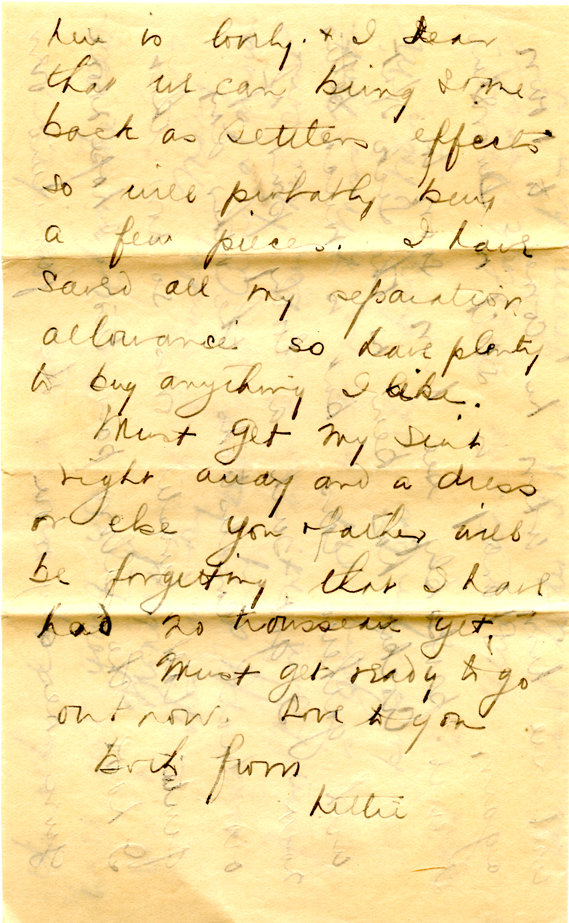 here is lovely. & I hear
that we can bring some
back as settlers effects
so will probably buy
a few pieces. I have
saved all my separation
allowance so have plenty
to buy anything I like.
Must get my suit
right away and a dress
or else you & father will
be forgetting that I have
had no trousseau yet.
Must get ready to go
out now. Love to you
both from
Lettie